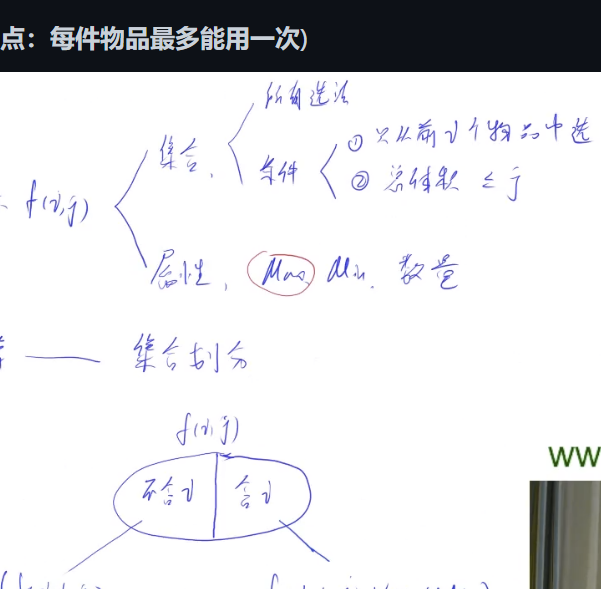 点：每件物品最多能用一次)
所有选法
集合
条件
① 只从前i个物品中选
② 总体积 ≤ j
f(i,j)
属性, Max, Min, 数量
集合划分
f(i,j)
不含i 含i
WW